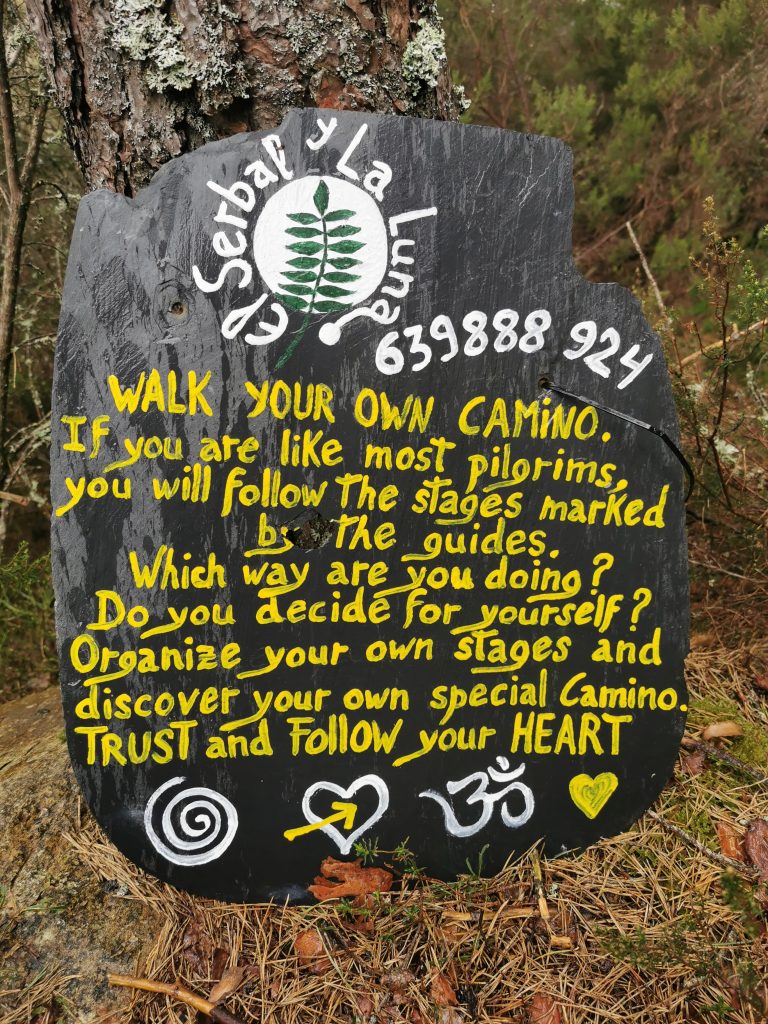 El Serbal y La Luna
639888 924
WALK YOUR OWN CAMINO.
If you are like most pilgrims,
you will follow the stages marked
by the guides.
Which way are you doing?
Do you decide for yourself?
Organize your own stages and
discover your own special Camino.
TRUST and FOLLOW your HEART
ॐ